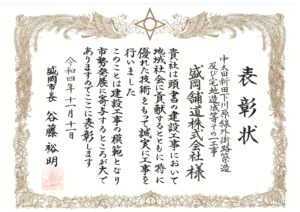 表彰状
中太田新田下川原線外街路築造
及び宅地造成等その一工事
盛岡舗道株式会社 様
貴社は頭書の建設工事において
地域社会に貢献するとともに特に
優れた技術をもって誠実に工事を
行いました
このことは建設工事の模範となり
市勢発展に寄与するところが大で
ありますのでここに表彰します
令和四年十一月十一日
盛岡市長 谷藤裕明